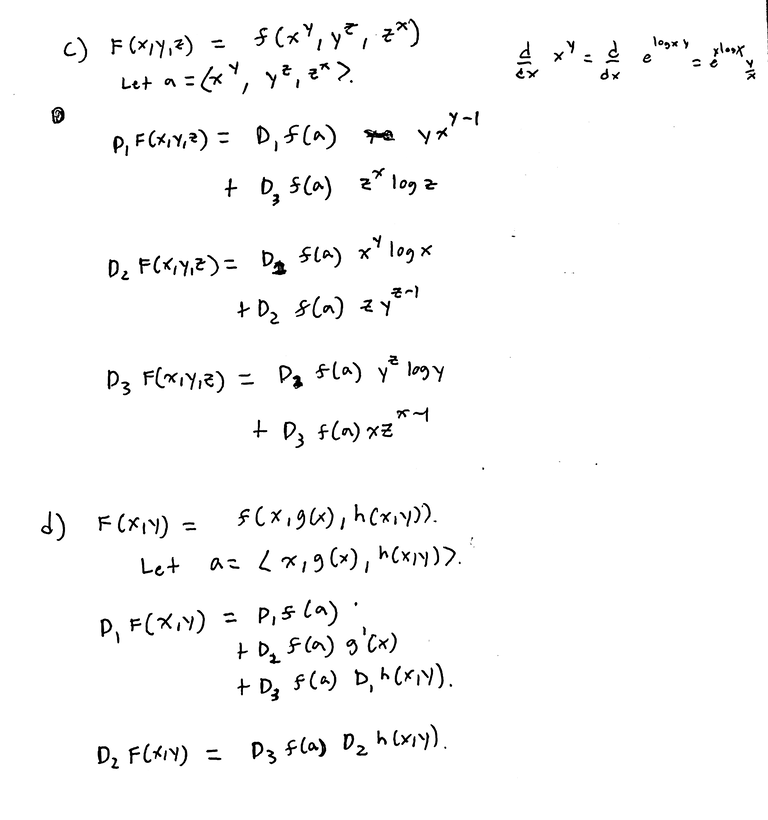 c) F(x,y,z) = f(x^y, y^z, z^x)
Let a = ⟨x^y, y^z, z^x⟩.
d/dx x^y = d/dx e^{log x y} = e^{x log x} y/x
D₁ F(x,y,z) = D₁ f(a) y x^{y-1}
+ D₃ f(a) z^x log z
D₂ F(x,y,z) = D₁ f(a) x^y log x
+ D₂ f(a) z y^{z-1}
D₃ F(x,y,z) = D₂ f(a) y^z log y
+ D₃ f(a) x z^{x-1}
d) F(x,y) = f(x, g(x), h(x,y)).
Let a = ⟨x, g(x), h(x,y)⟩.
D₁ F(x,y) = D₁ f(a)
+ D₂ f(a) g'(x)
+ D₃ f(a) D₁ h(x,y).
D₂ F(x,y) = D₃ f(a) D₂ h(x,y).